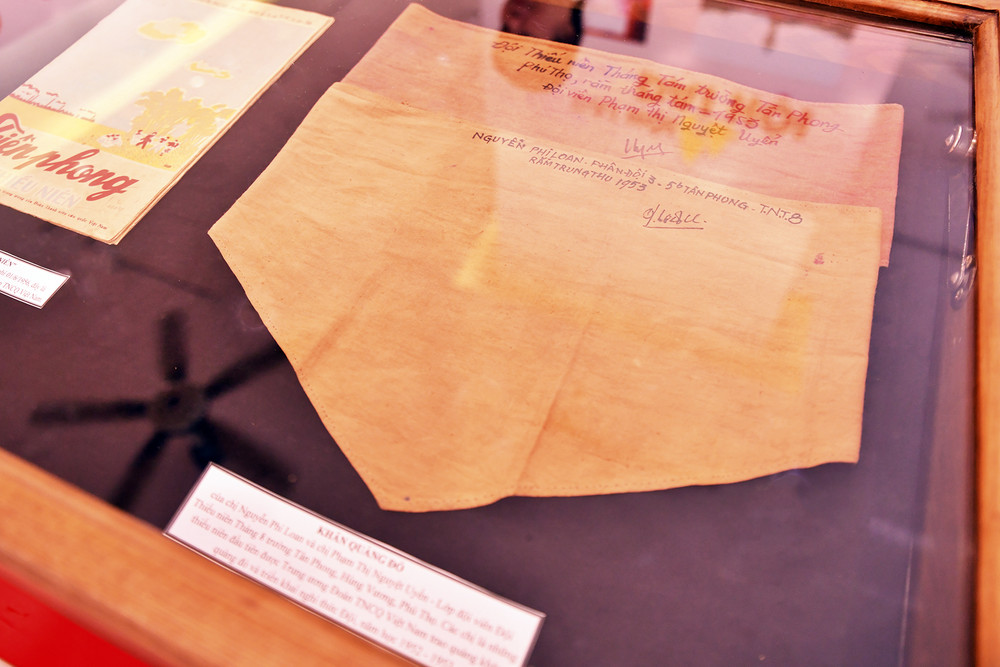 Tiền phong
THIẾU NIÊN
Đội Thiếu niên Tháng Tám trường Tân Phong
Phú Thọ, rằm tháng tám - 1953
Đội viên Phạm Thị Nguyệt Uyển
NGUYỄN PHI LOAN - PHÂN ĐỘI 3 - 5b TÂN PHONG - T.N.T.8
RẰM TRUNG THU 1953
KHĂN QUÀNG ĐỎ
của chị Nguyễn Phi Loan và chị Phạm Thị Nguyệt Uyển - Lớp đội viên Đội
Thiếu niên Tháng 8 trường Tân Phong, Hùng Vương, Phú Thọ. Các chị là những
thiếu niên đầu tiên được Trung ương Đoàn TNCQ Việt Nam trao quàng khăn
quàng đỏ và triển khai nghi thức Đội, năm học 1952 - 1953